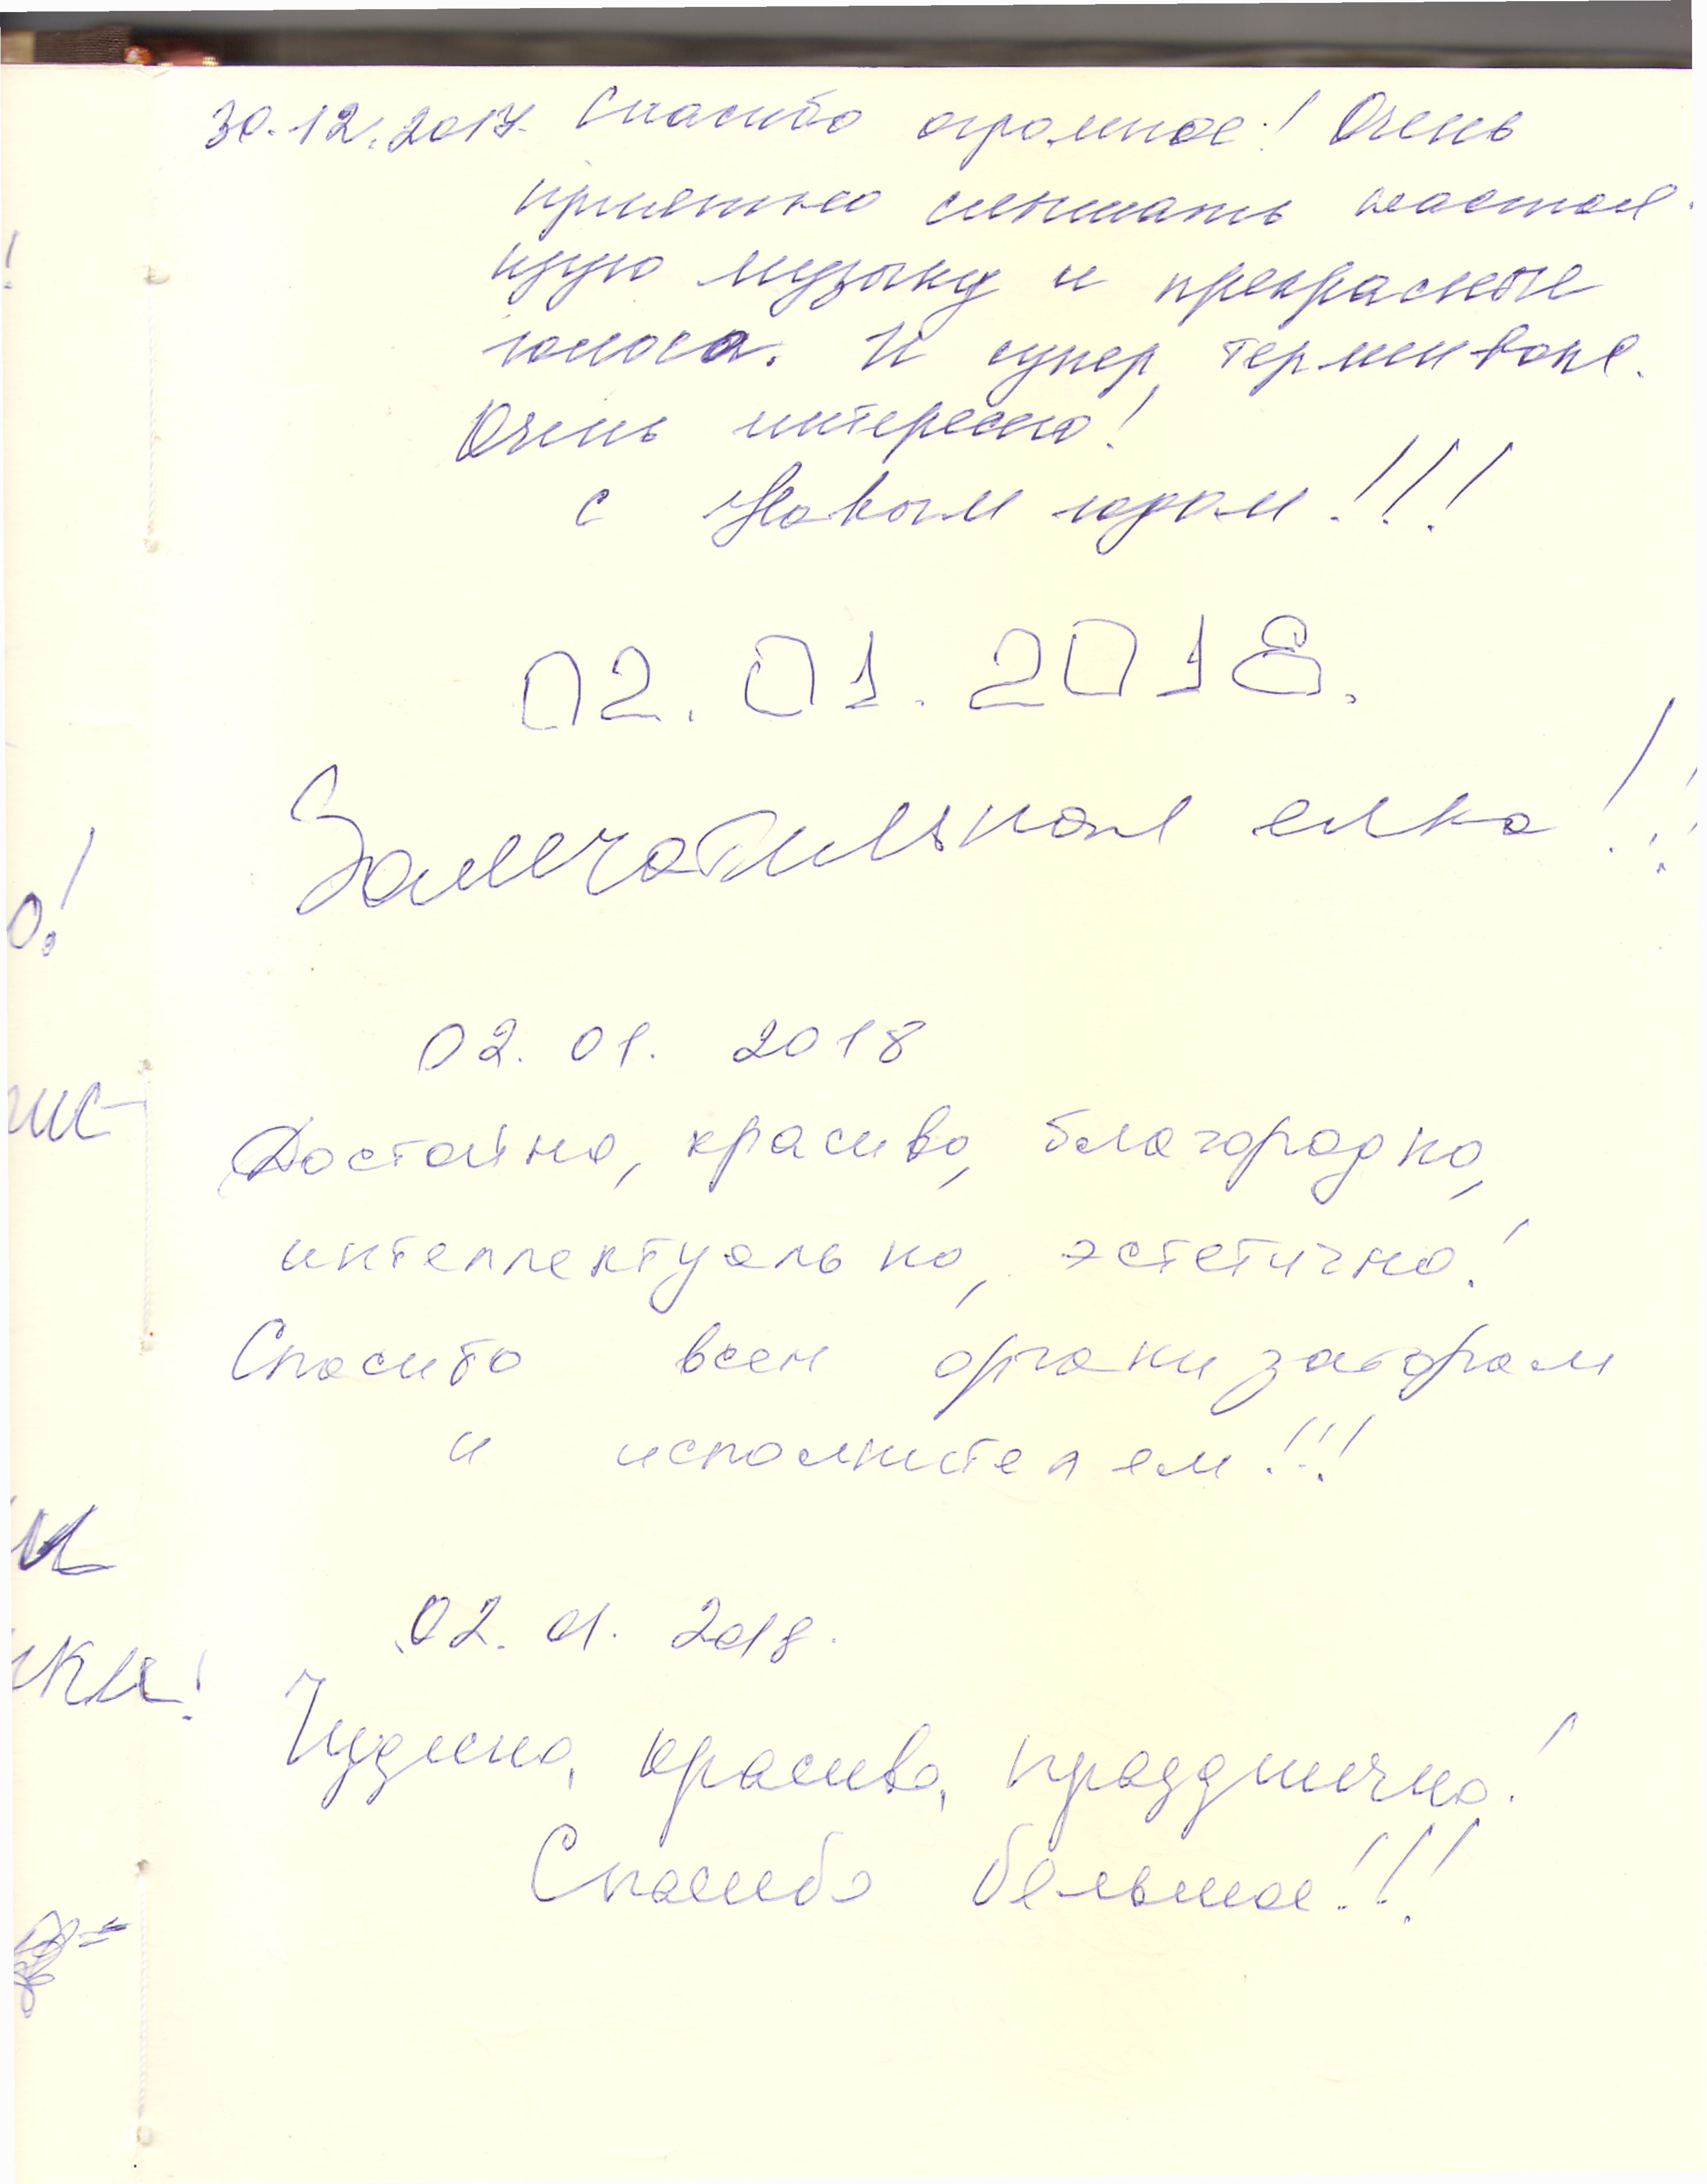 30.12.2017. Спасибо огромное! Очень
приятно слышать настоя-
щую музыку и прекрасные
голоса. И супер, терменвокс.
Очень интересно!
С Новым годом!!!
02.01.2018.
Замечательная елка!!!
02.01.2018
Достойно, красиво, благородно,
интеллектуально, эстетично!
Спасибо всем организаторам
и исполнителям!!!
02.01.2018.
Чудесно, красиво, празднично!
Спасибо большое!!!